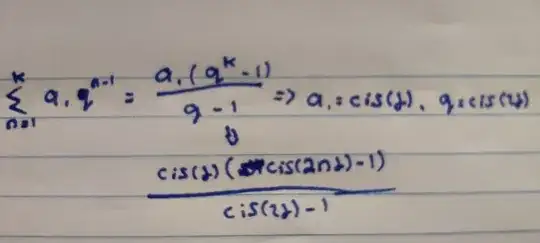 ∑_{n=1}^{k} a₁ q^{n-1} = a₁(q^k - 1) / (q - 1) => a₁ = cis(z), q = cis(2z)
⇓
cis(z)(cis(2nz) - 1) / (cis(2z) - 1)